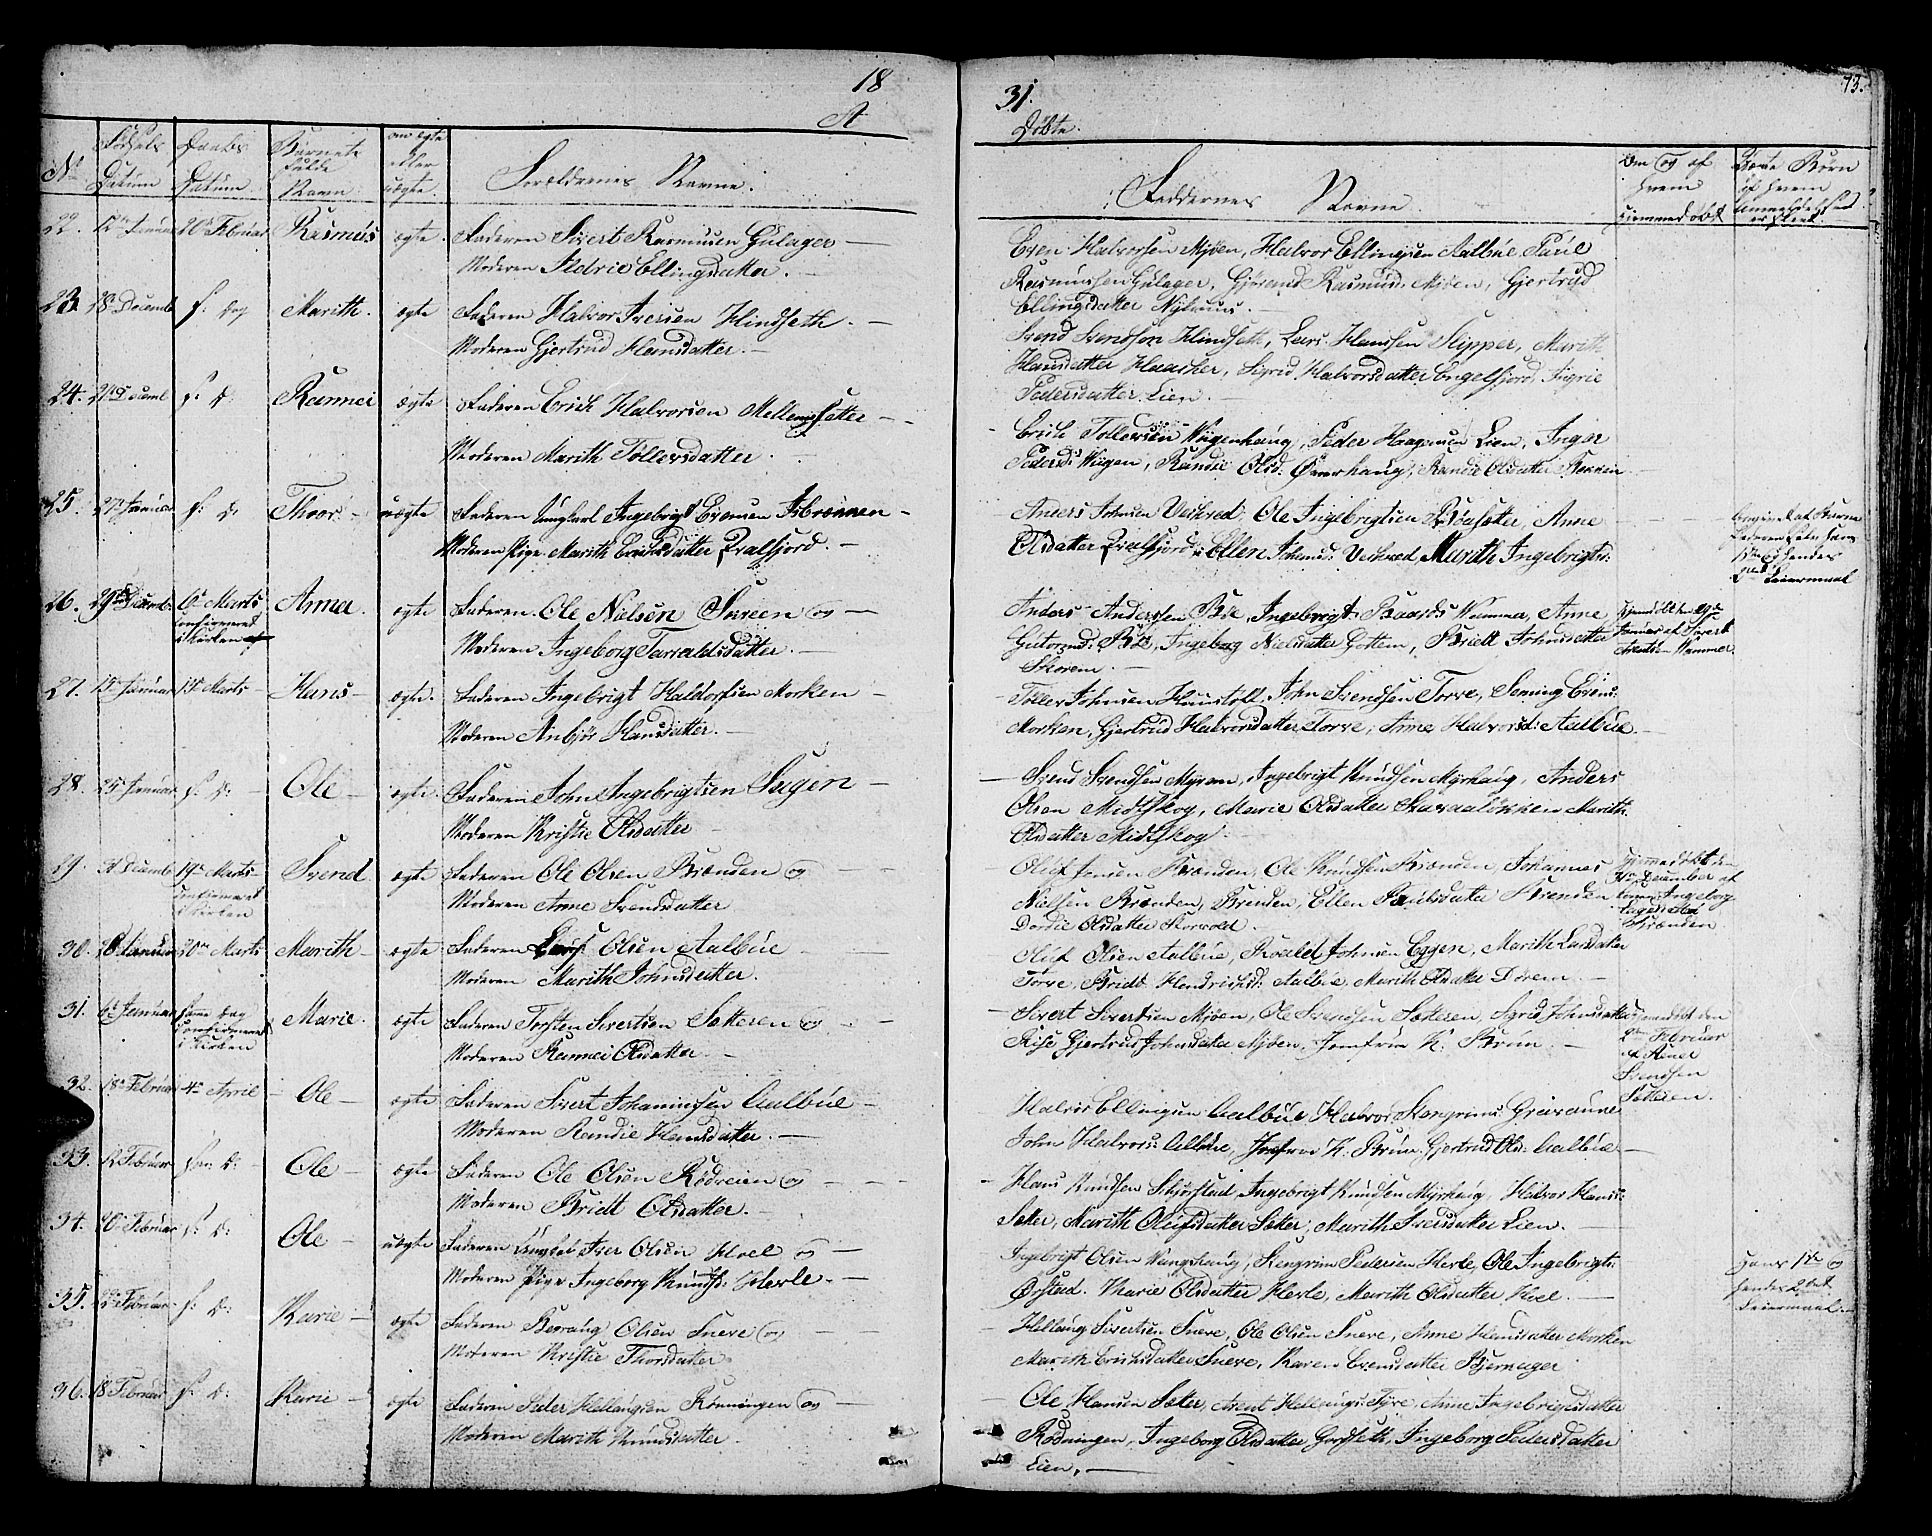 18
31.
73.
A
Døbte.
No
Fødsels Datum
Daabs Datum
Barnets fulde Navn
om ægte eller uægte
Forældrenes Navne.
Faddernes Navne.
Om og af hvem hjemmedøbt
22. 12te Januar 20de Februar Rasmus ægte. Faderen Sivert Rasmusen Gulager —
Moderen Ildrie Ellingsdatter. —
Even Halvorsen Mjøen, Halvor Ellingsen Aalbue Paul
Rasmussen Gulager, Gjørend Rasmusd. Mjøen, Gjertrud
Ellingsdatter
23. 28. Decemb f: Dag Marith. ægte Faderen Halvor Iversen Hindseth. —
Moderen Gjertrud Hansdatter. —
Svend Svendsen Hindseth, Lars Hansen Skipper, Marith
Hansdatter Haarker, Sigrid Halvorsdatter Engelsfjord, Ingrie
Pedersdatter Lien. —
24. f: D: Rannei ægte Faderen Erich Halvorsen Mellemsætter —
Moderen Marith Tollevsdatter.
Erich Tollevsen Wiigenhaug, Peder Haagensen Lien, Inger
Pedersd: Wiigen, Randie Olsd. Øverhaug, Randie Olsdatter Stokken
25. 27 Januar f: D. Thoor. — uægte Faderen Ungkarl Ingebrigt Evensen Isbrekken —
Moderen Pige Marith Erichsdatter Qvalfjord. —
Anders Johnsen Veihred, Ole Ingebrigtsen Røesætter, Anne
Olsdatter Qvalfjord, Ellen Johnsd. Veihred, Marith Ingebrigts:
26. 29de Decemb 6te Marts confirmered i Kirken Anna. ægte Faderen Ole Nielsen Skreen og —
Moderen Ingeborg Taraldsdatter. —
Anders Andersen Bøe, Ingebrigt Baards Wammer, Anne
Gutormsd: Bøe, Ingeborg Nielsdatter Gottem, Bridt Johnsdatter
Skorem. —
Hjemdøbt den
Januar af Sivert
Wammer
27. 15 Januar 15 Marts — Hans — ægte. Faderen Ingebrigt Haldorsen Morken —
Moderen Anbjør Hansdatter. —
Toller Johnsen Haarstøll, John Svendsen Torve, Semming Evens:
Morken, Gjertrud Halvorsdatter Torve, Anne Halvorsd: Aalbue. —
28. 25 Januar f. D: — Ole — ægte. Faderen John Ingebrigtsen Sugen —
Moderen Kristie Olsdatter —
— Svend Svendsen Myran, Ingebrigt Knudsen Myrhaug, Anders
Olsen Midtskog, Marie Olsdatter Skaraaløkken Marith
Olsdatter Midtskog. —
29. 31 Decemb 19de Marts confirmeret i Kirken Svend. ægte Faderen Ole Olsen Brænden og — —
Moderen Anne Svendsdatter
Oluf Jensen Brænden, Ole Knudsen Brænden, Johannes
Nielsen Brænden, Brænden, Ellen Paulsdatter Brænden
Dordie Olsdatter Storvold. —
Hjemmedøbt den
31te December af
Ingeborg
Brænden.
30. Januar 20de Marts Marith — ægte Faderen Lars Olsen Aalbue —
Moderen Marith Johnsdatter.
Oluf Olsen Aalbue, Roaldt Johnsen Eggen, Marith Larsdatter
Torve, Bridt Hendrichsd: Aalbue Marith Olsdatter Dørem. —
31. 6te Januar samme Dag confirmeret i Kirken Marie. ægte Faderen Torsten Sivertsen Sætteren og — —
Moderen Rannei Olsdatter. —
Sivert Sivertsen Mjøen, Ole Svendsen Sætteren, Sigrid Johnsdatter
Rise Gjertrud Johnsdatter Mjøen, Jomfrue K. Bruun. —
Hjemmedøbt den
2den Februar
af
Svendsen
Sætteren.
32. 18de Februar 4de April — Ole — ægte Faderen Sivert Johannesen Aalbue —
Moderen Randie Hansdatter. —
Halvor Ellingsen Aalbue Halvor Stengrims: Gravaune
John Halvors: Aalbue, Jomfrue K. Bruun, Gjertrud Olsd: Aalbue —
33. 12 Februar sam: D: — Ole — ægte Faderen Ole Olsen Rødveien og — —
Moderen Bridt Olsdatter. —
— Hans Knudsen Skjørstad, Ingebrigt Knudsen Myrhaug, Halvor Hans:
Sæter, Marith Olufsdatter Sæter, Marith Iversdatter Lien. —
34. 10de Februar f: D: Ole — uægte Faderen Ungkarl Iver Olsen Hoel og —
Moderen Pige Ingeborg Knudsd: Herle. —
Ingebrigt Olsen Vangshaug, Stengrim Pedersen Herle, Ole Ingebrigts:
Ørstad. Marie Olsdatter Herle, Marith Olsdatter Hoel. —
Hans 1ste og
hendes 2det
Leiermaal. —
35. Februar f: D: Karie — ægte Faderen Beraug Olsen Sneve og — —
Moderen Kristie Thorsdatter.
Hellaug Sivertsen Sneve, Ole Olsen Sneve, Anne Hansdatter Morken
Marith Erichsdatter Sneve, Karen Evensdatter Bjerrager
36. 18 Februar f: D: Karie — ægte Faderen Peder Hellaugsen Rønningen og —
Moderen Marith Knudsdatter.
— Ole Hansen Sæter, Arent Hellaugs: Fyre, Anne Ingebrigtsdatter
Rødningen, Ingeborg Olsdatter Gordseth, Ingeborg Pedersdatter
Lien. —